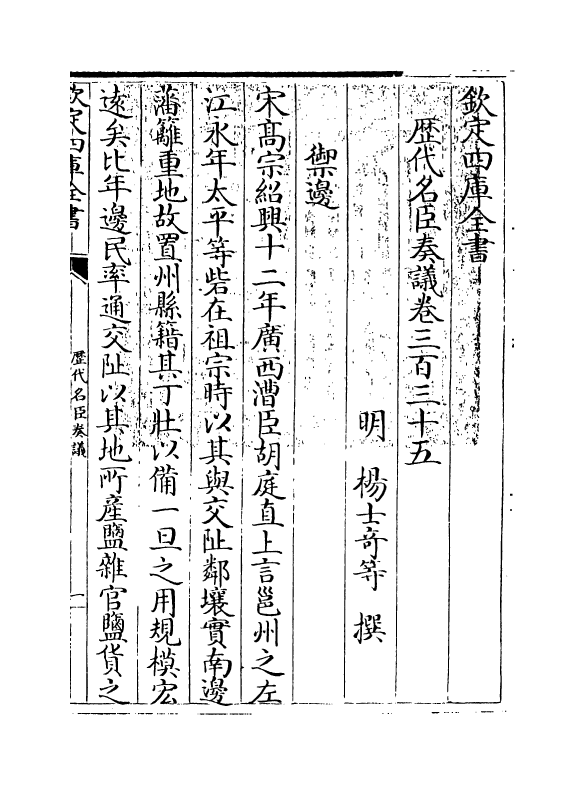 欽定四庫全書
歴代名臣奏議卷三百三十五
明 楊士奇等 撰
禦邊
宋髙宗紹興十二年廣西漕臣胡庭直上言邕州之左
江永年太平等砦在祖宗時以其與交阯鄰壤實南邊
藩籬重地故置州縣籍其丁壯以備一旦之用規模宏
逺矣比年邊民率通交阯以其地所産鹽雜官鹽貨之
欽定四庫全書
歴代名臣奏議
一